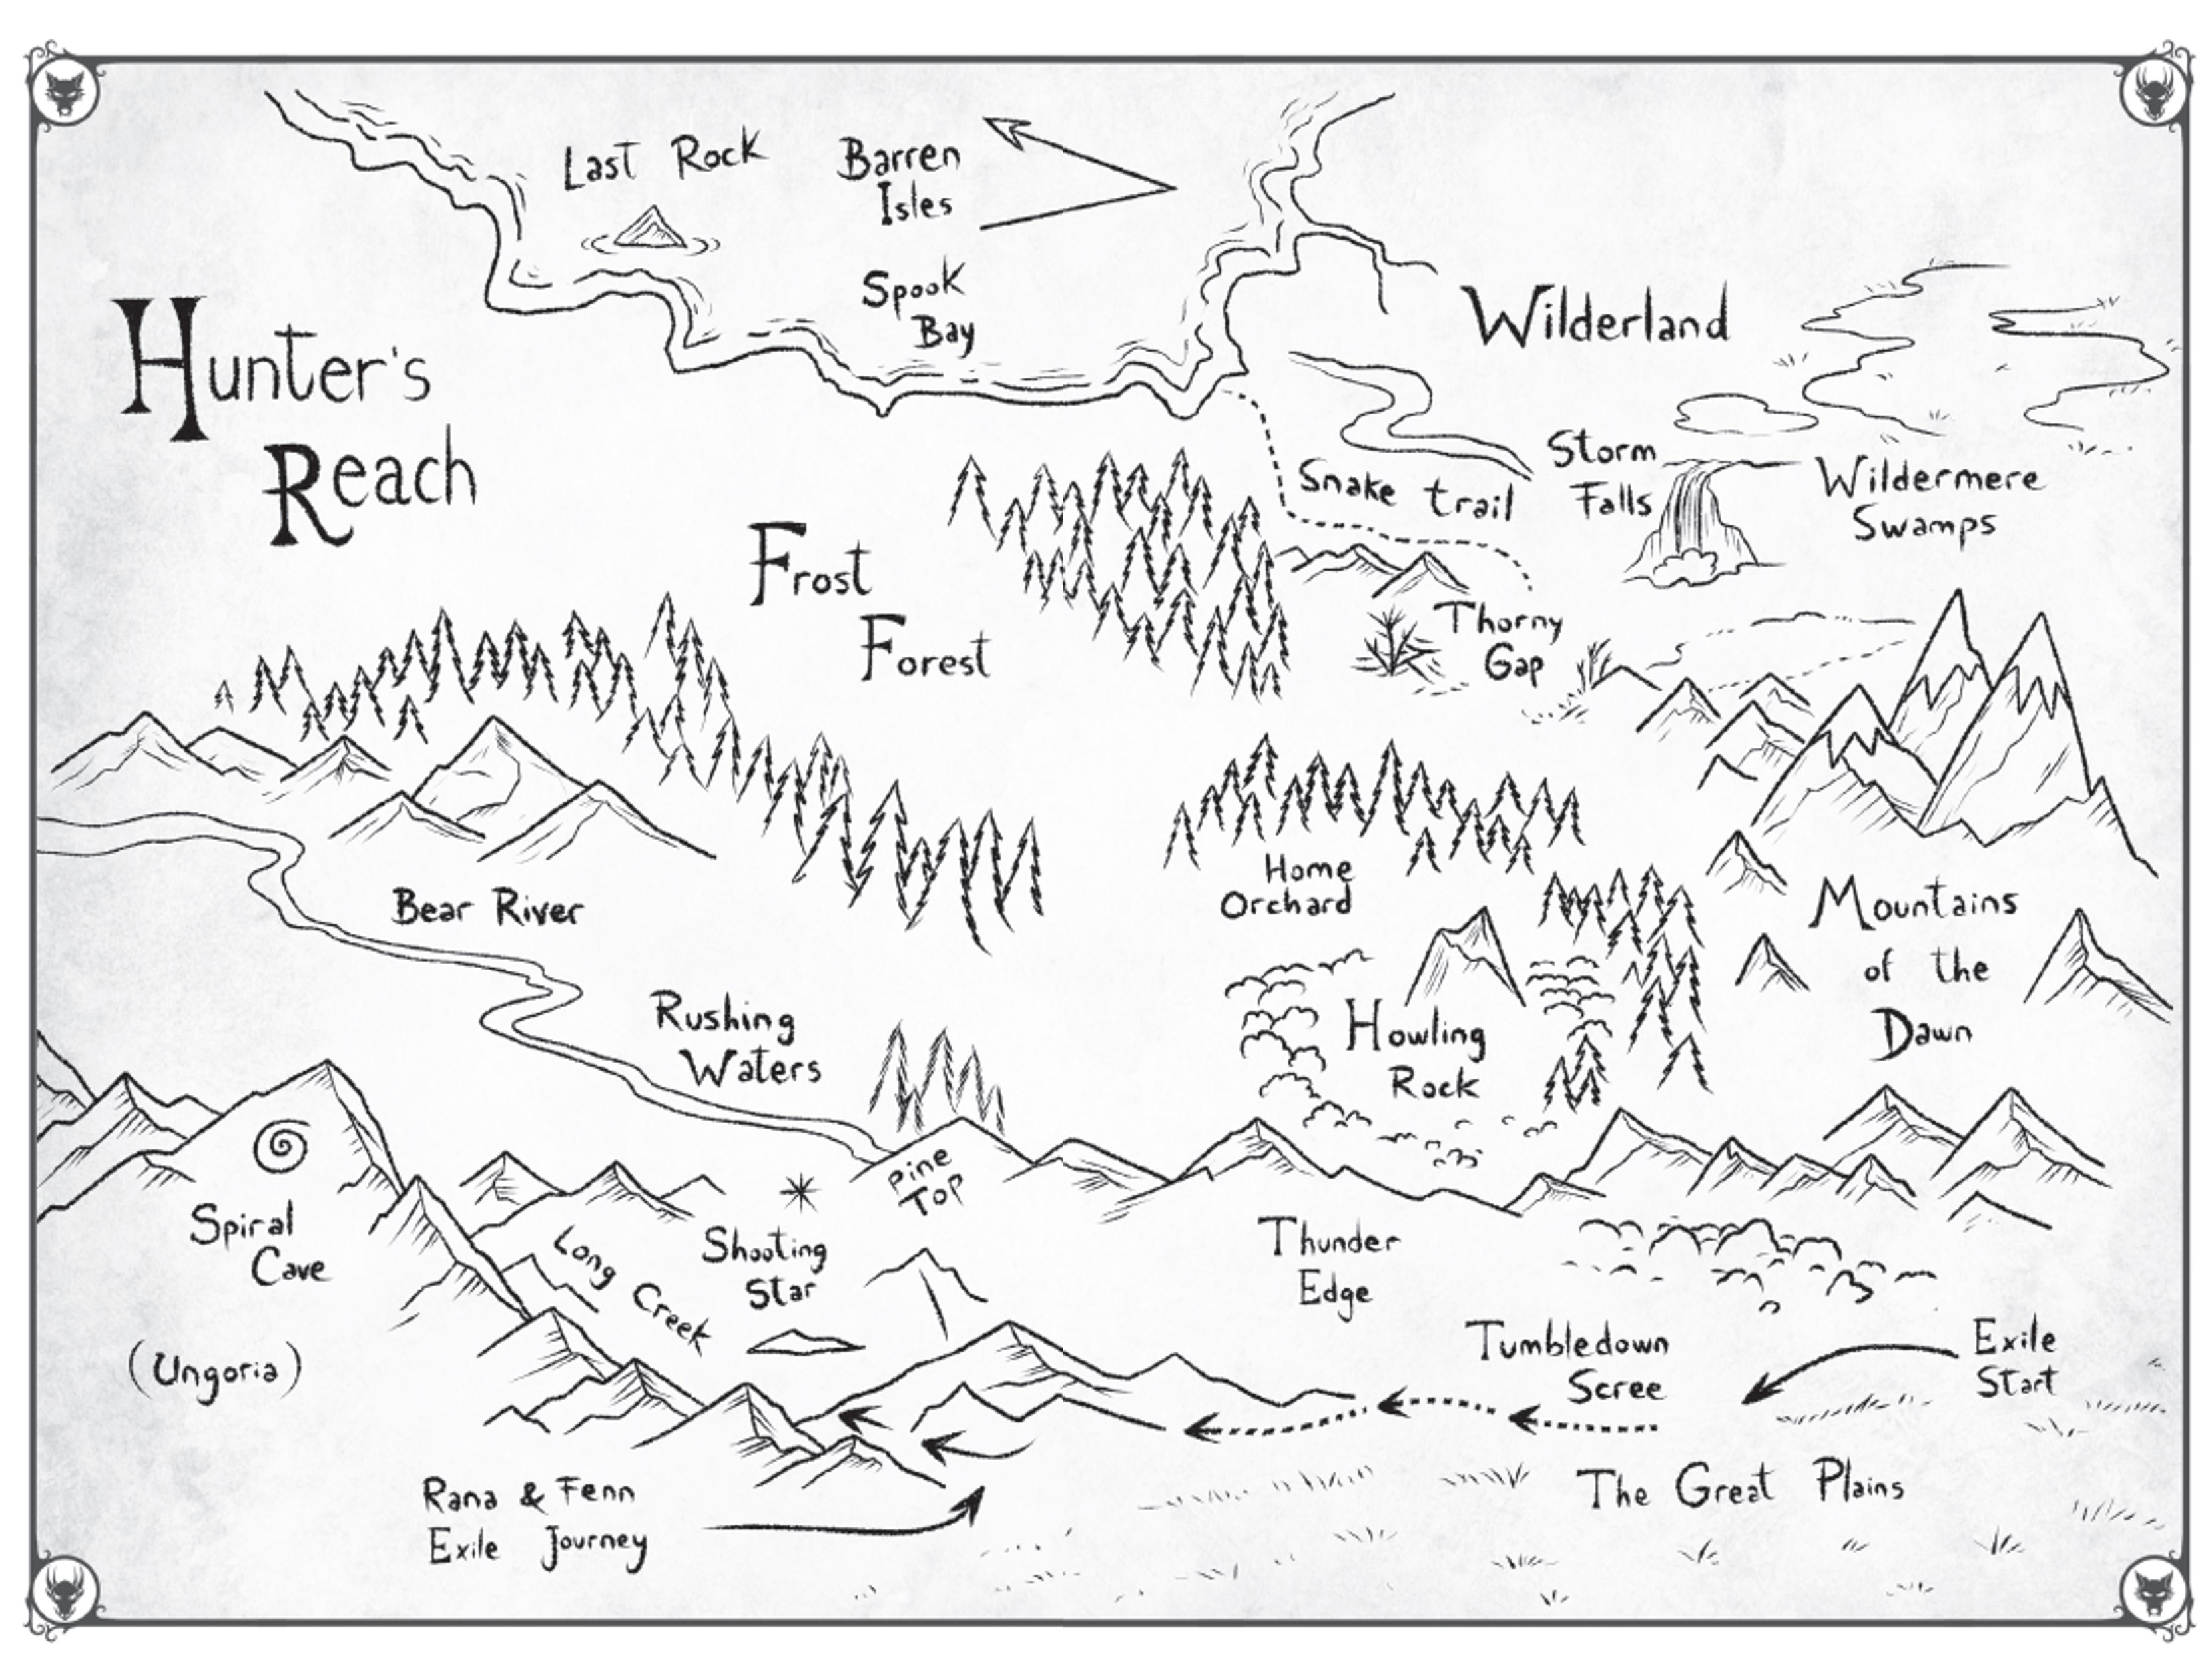 Last Rock
Barren
Isles
Spook
Bay
Hunter's
Reach
Wilderland
Storm
Falls
Snake trail
Wildermere
Swamps
Frost
Forest
Thorny
Gap
Home
Orchard
Bear River
Mountains
of the
Dawn
Rushing
Waters
Howling
Rock
Pine
Top
Spiral
Cave
Long Creek
Shooting
Star
Thunder
Edge
(Ungoria)
Tumbledown
Scree
Exile
Start
The Great Plains
Rana & Fenn
Exile Journey